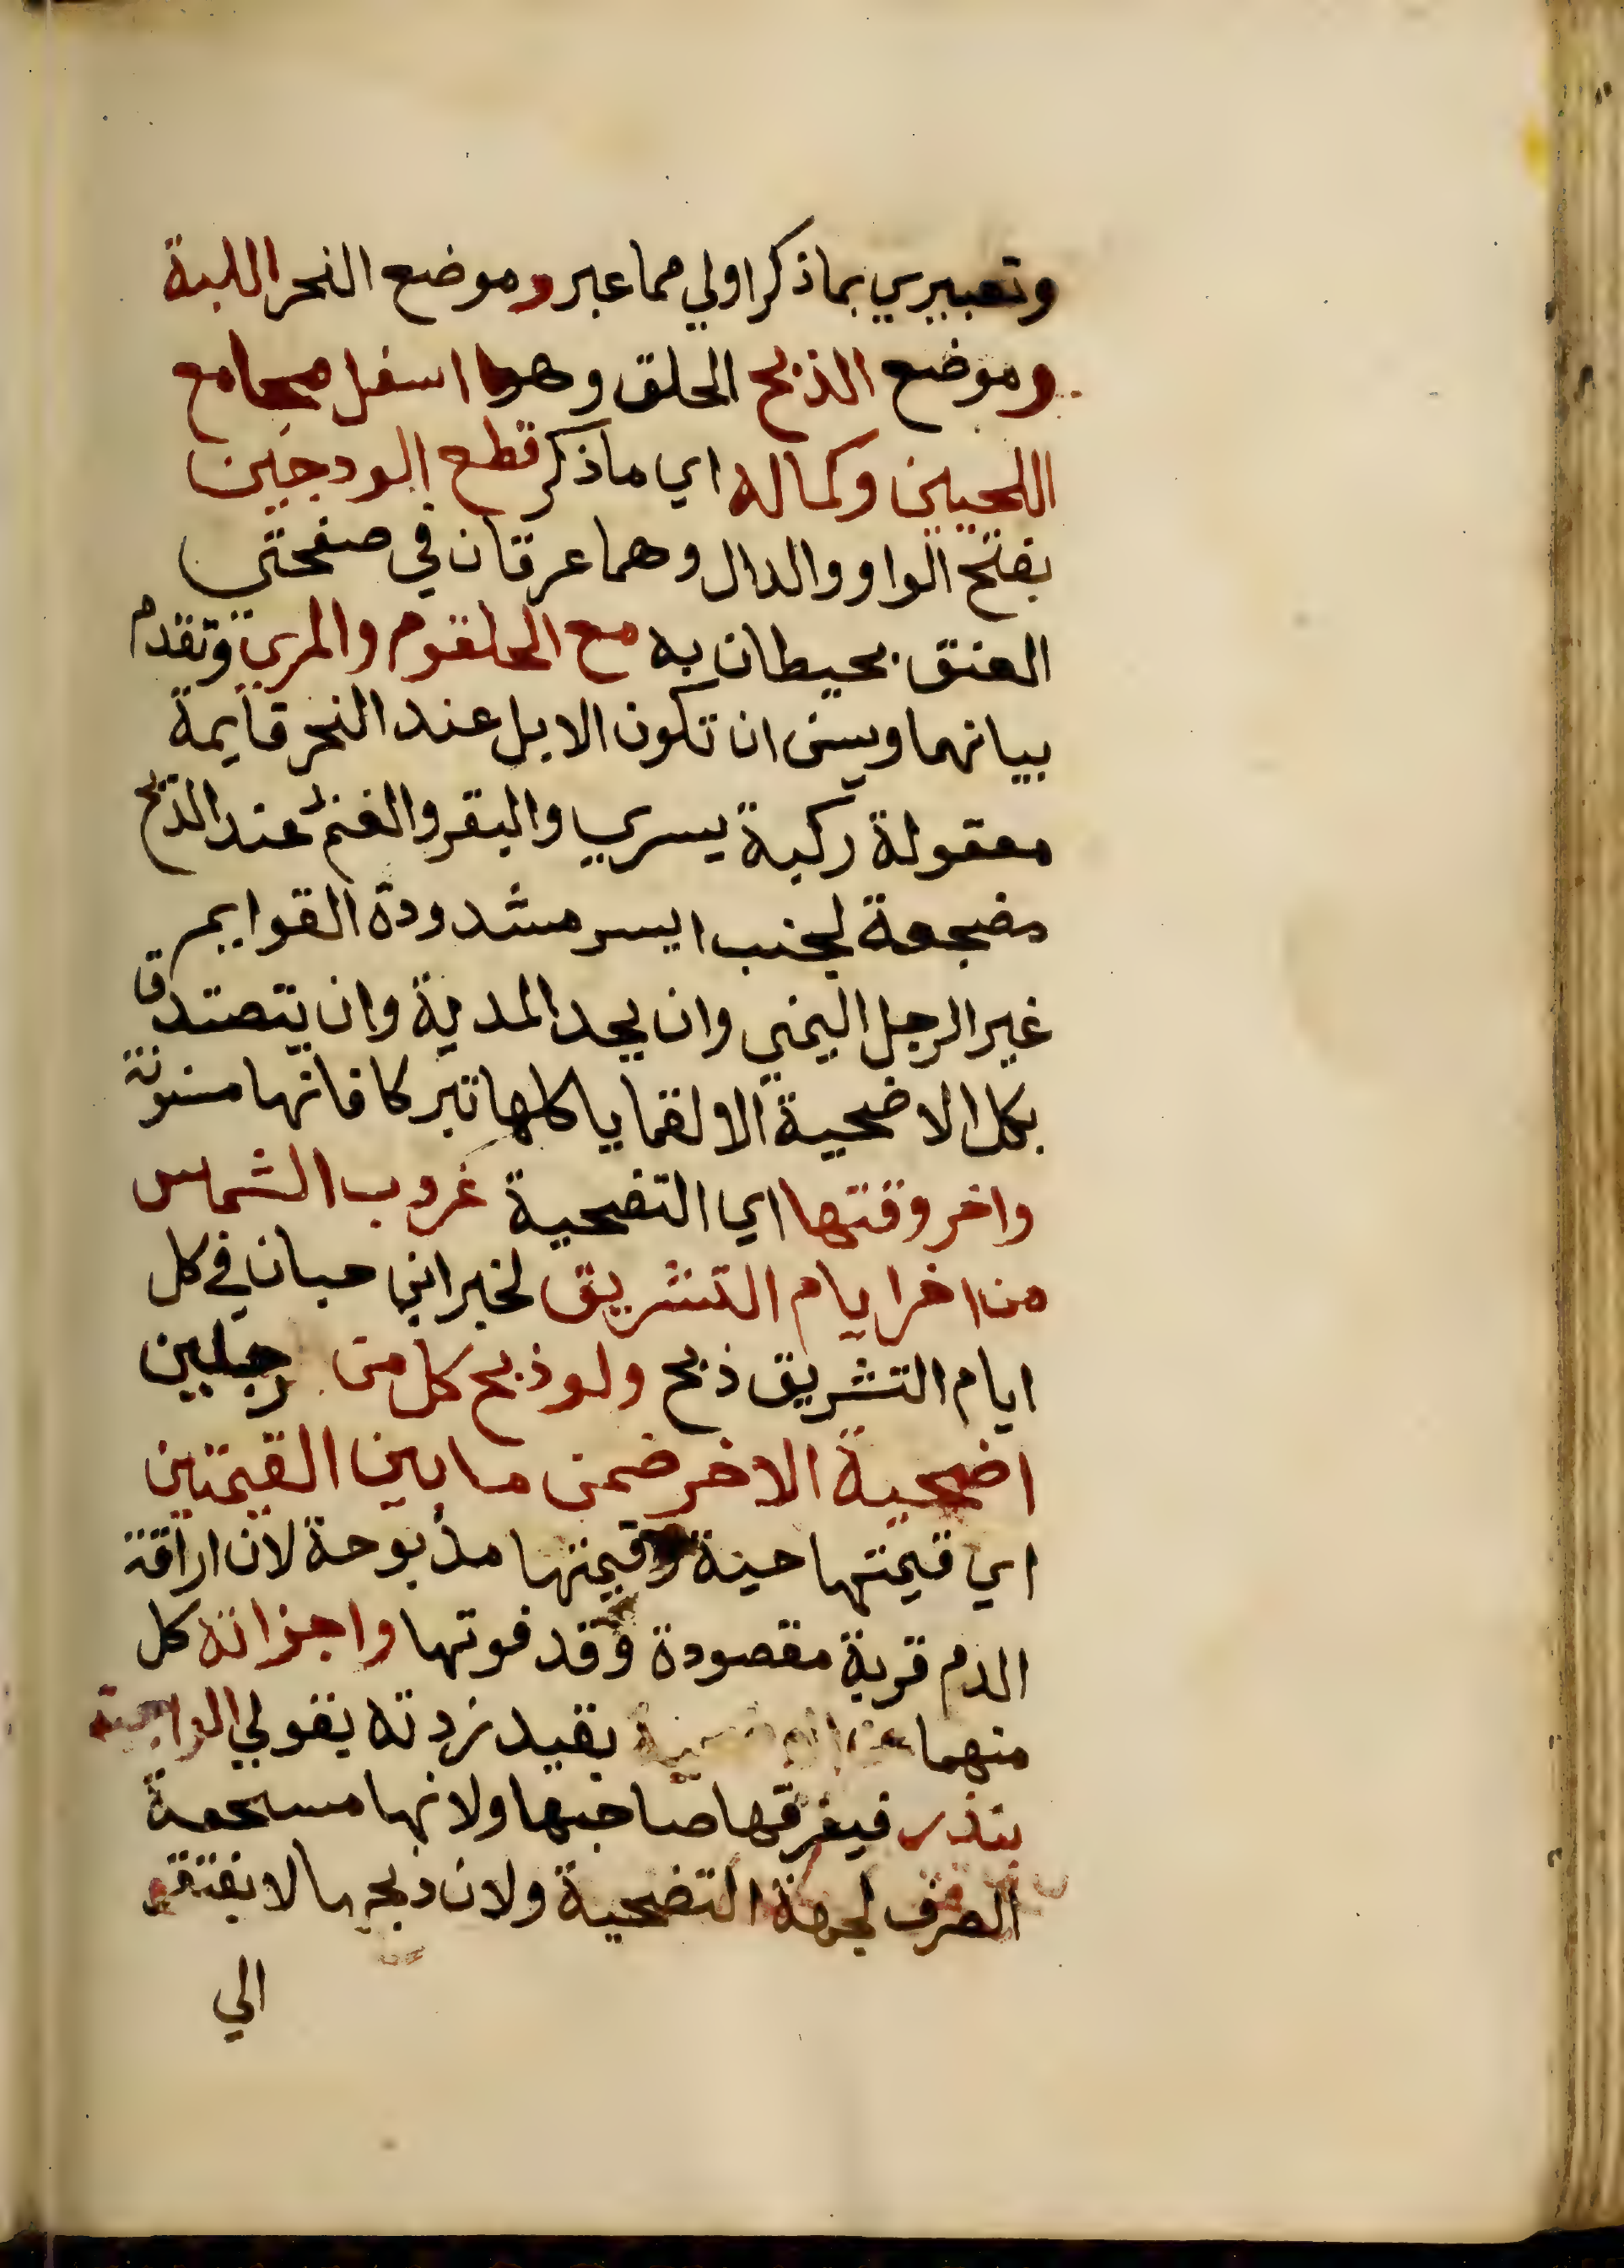 وتعبيري بما ذكر اولي مما عبر وموضع النحر اللبة
وموضع الذبح الحلق وهو اسفل مجامع
اللحيين وكماله اي ما ذكر قطع الودجين
بفتح الواو والدال وهما عرقان في صفحتي
العنق يحيطان به مع الحلقوم والمري وتقدم
بيانهما ويسن ان تكون الابل عند النحر قايمة
معقولة ركبة يسري والبقر والغنم عند الذبح
مضجعة لجنب ايسر مشدودة القوايم
غير الرجل اليمني وان يحد المدية وان يتصدق
بكل الاضحية الا لقما ياكلها تبركا فانها مسنونة
واخر وقتها اي التضحية غروب الشمس
من اخر ايام التشريق لخبر ابن حبان في كل
ايام التشريق ذبح ولو ذبح كل من رجلين
اضحية الاخر ضمن ما بين القيمتين
اي قيمتها حية وقيمتها مذبوحة لان اراقة
الدم قربة مقصودة وقد فوتها واجزاته كل
منهما عن الاضحية بقيد زدته بقولي الواجبة
بنذر فيفرقها صاحبها ولانها مستحقة
الصرف لجهة التضحية ولان ذبحها لا يفتقر
الي